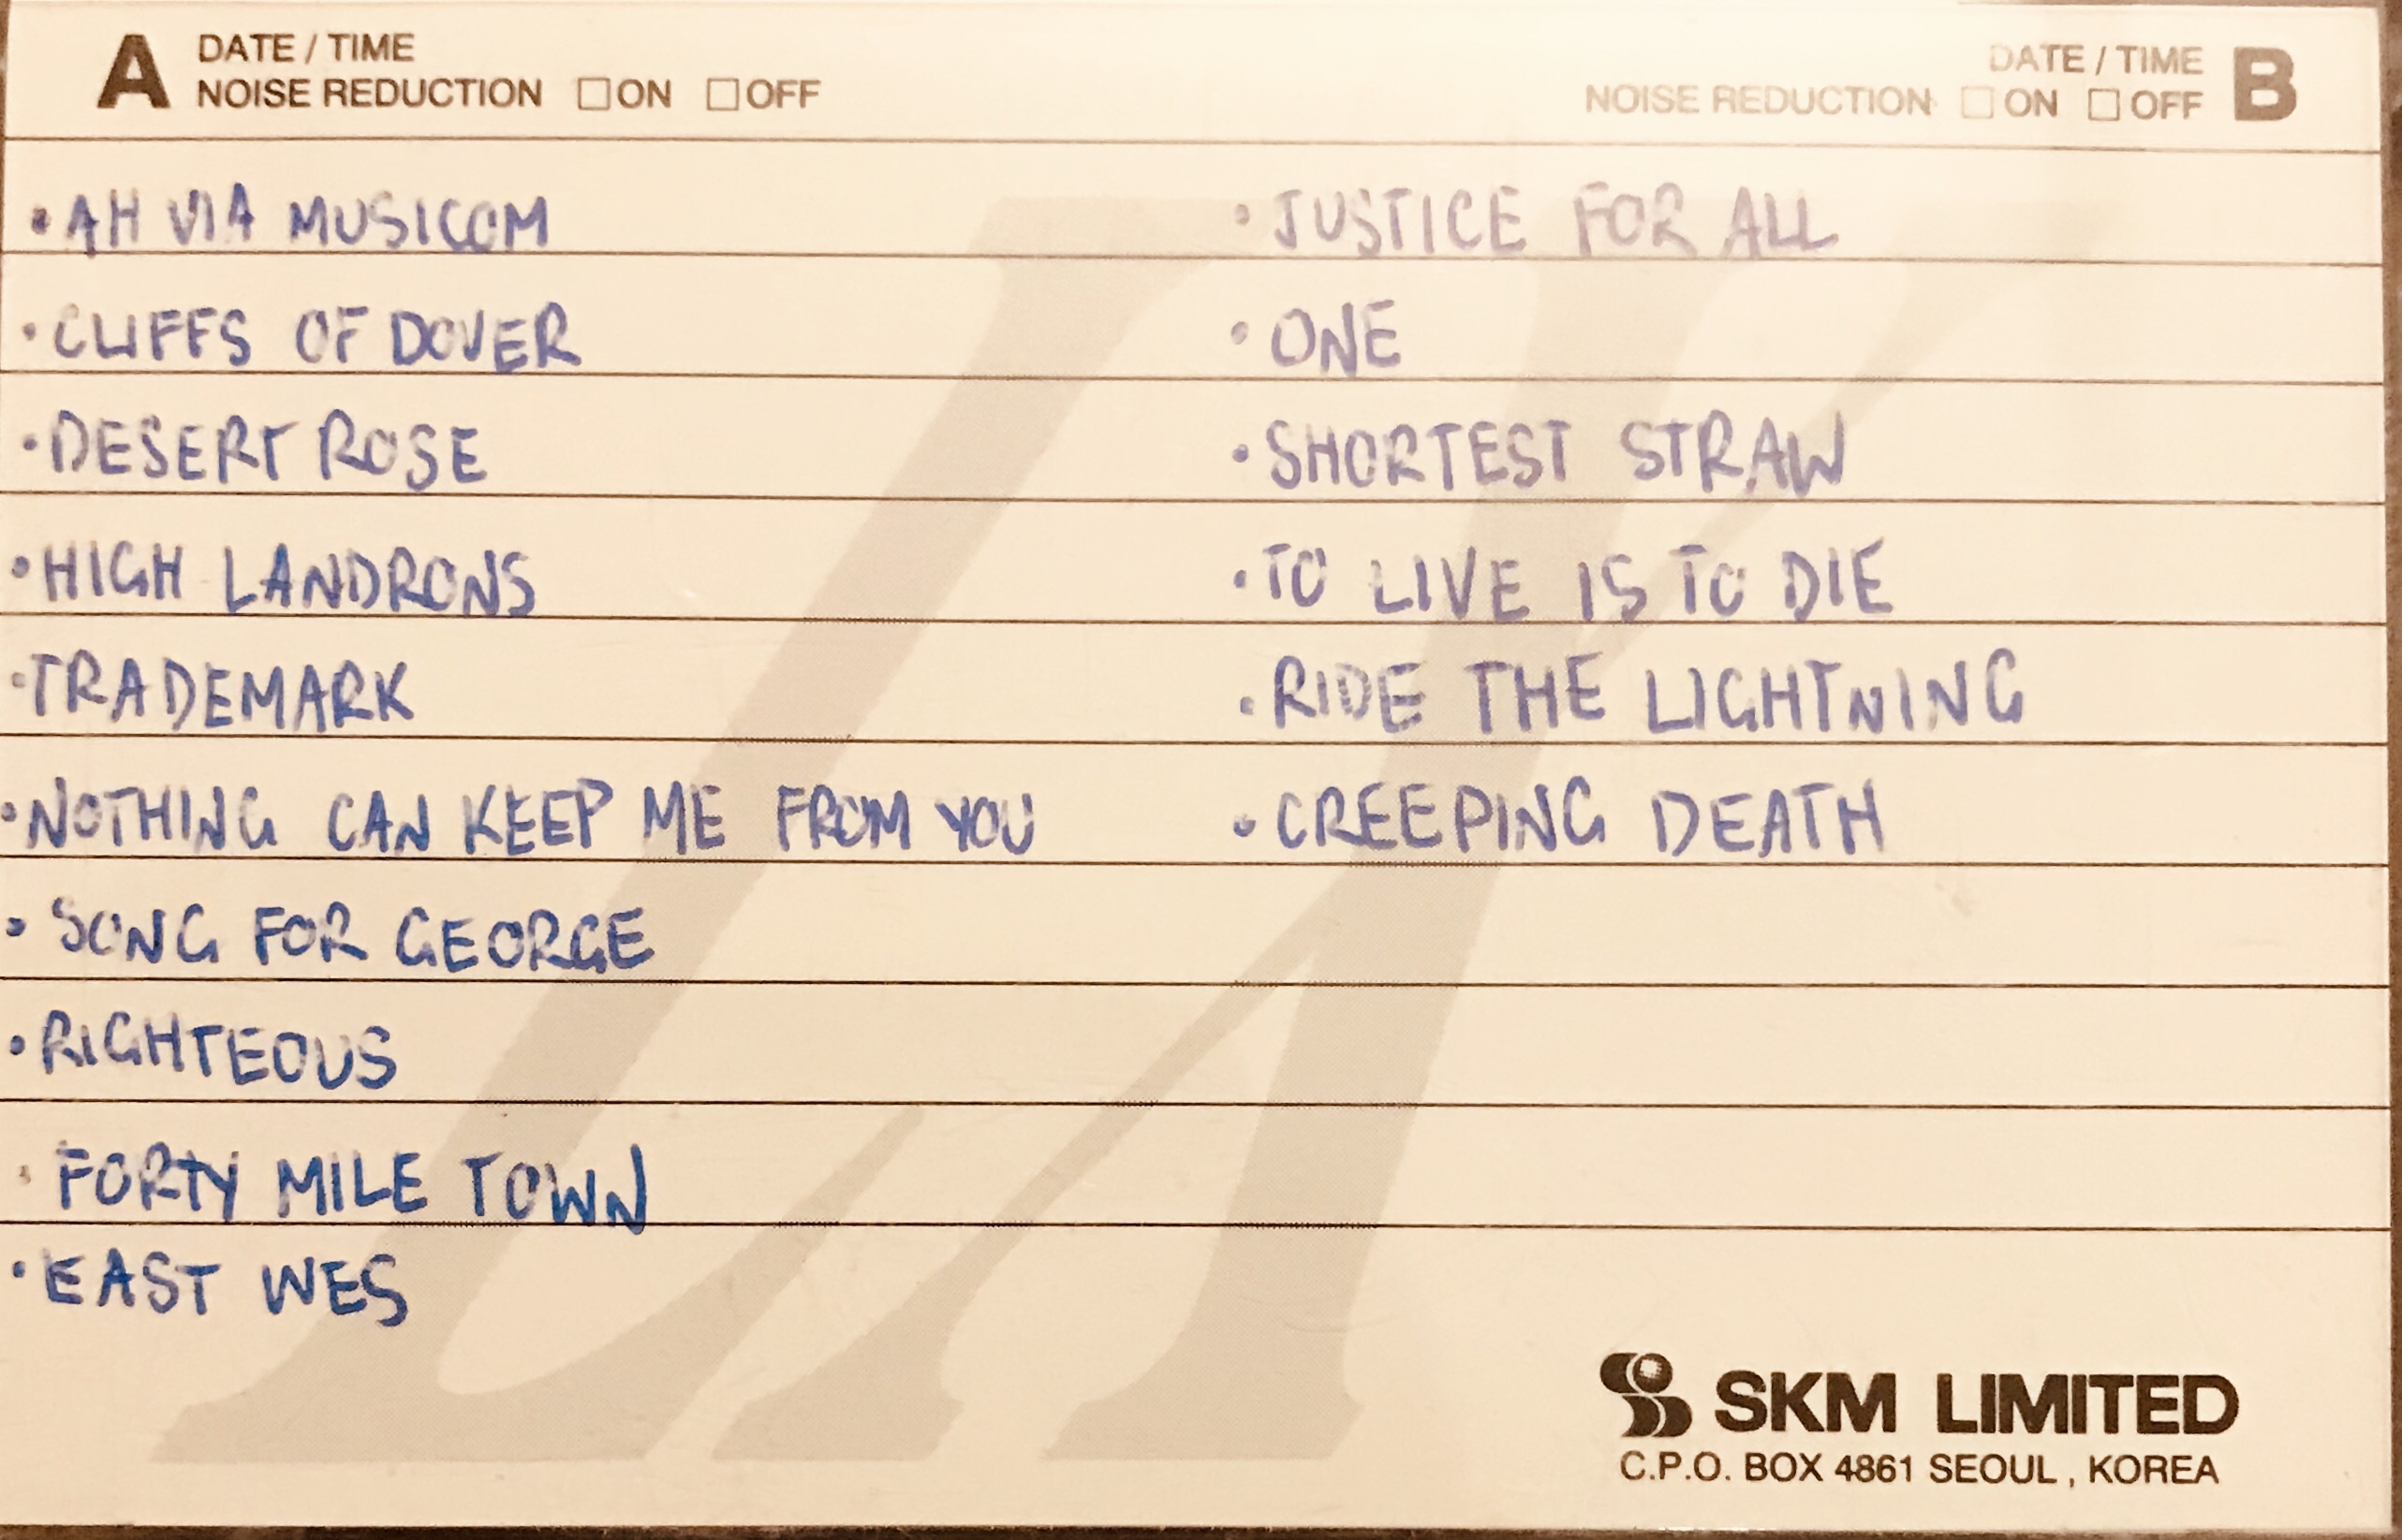 A DATE / TIME
NOISE REDUCTION □ON □OFF
DATE / TIME B
NOISE REDUCTION □ON □OFF
•AH VIA MUSICOM
•CLIFFS OF DOVER
•DESERT ROSE
•HIGH LANDRONS
•TRADEMARK
•NOTHING CAN KEEP ME FROM YOU
•SONG FOR GEORGE
•RIGHTEOUS
•FORTY MILE TOWN
•EAST WES
•JUSTICE FOR ALL
•ONE
•SHORTEST STRAW
•TO LIVE IS TO DIE
•RIDE THE LIGHTNING
•CREEPING DEATH
SKM LIMITED
C.P.O. BOX 4861 SEOUL, KOREA